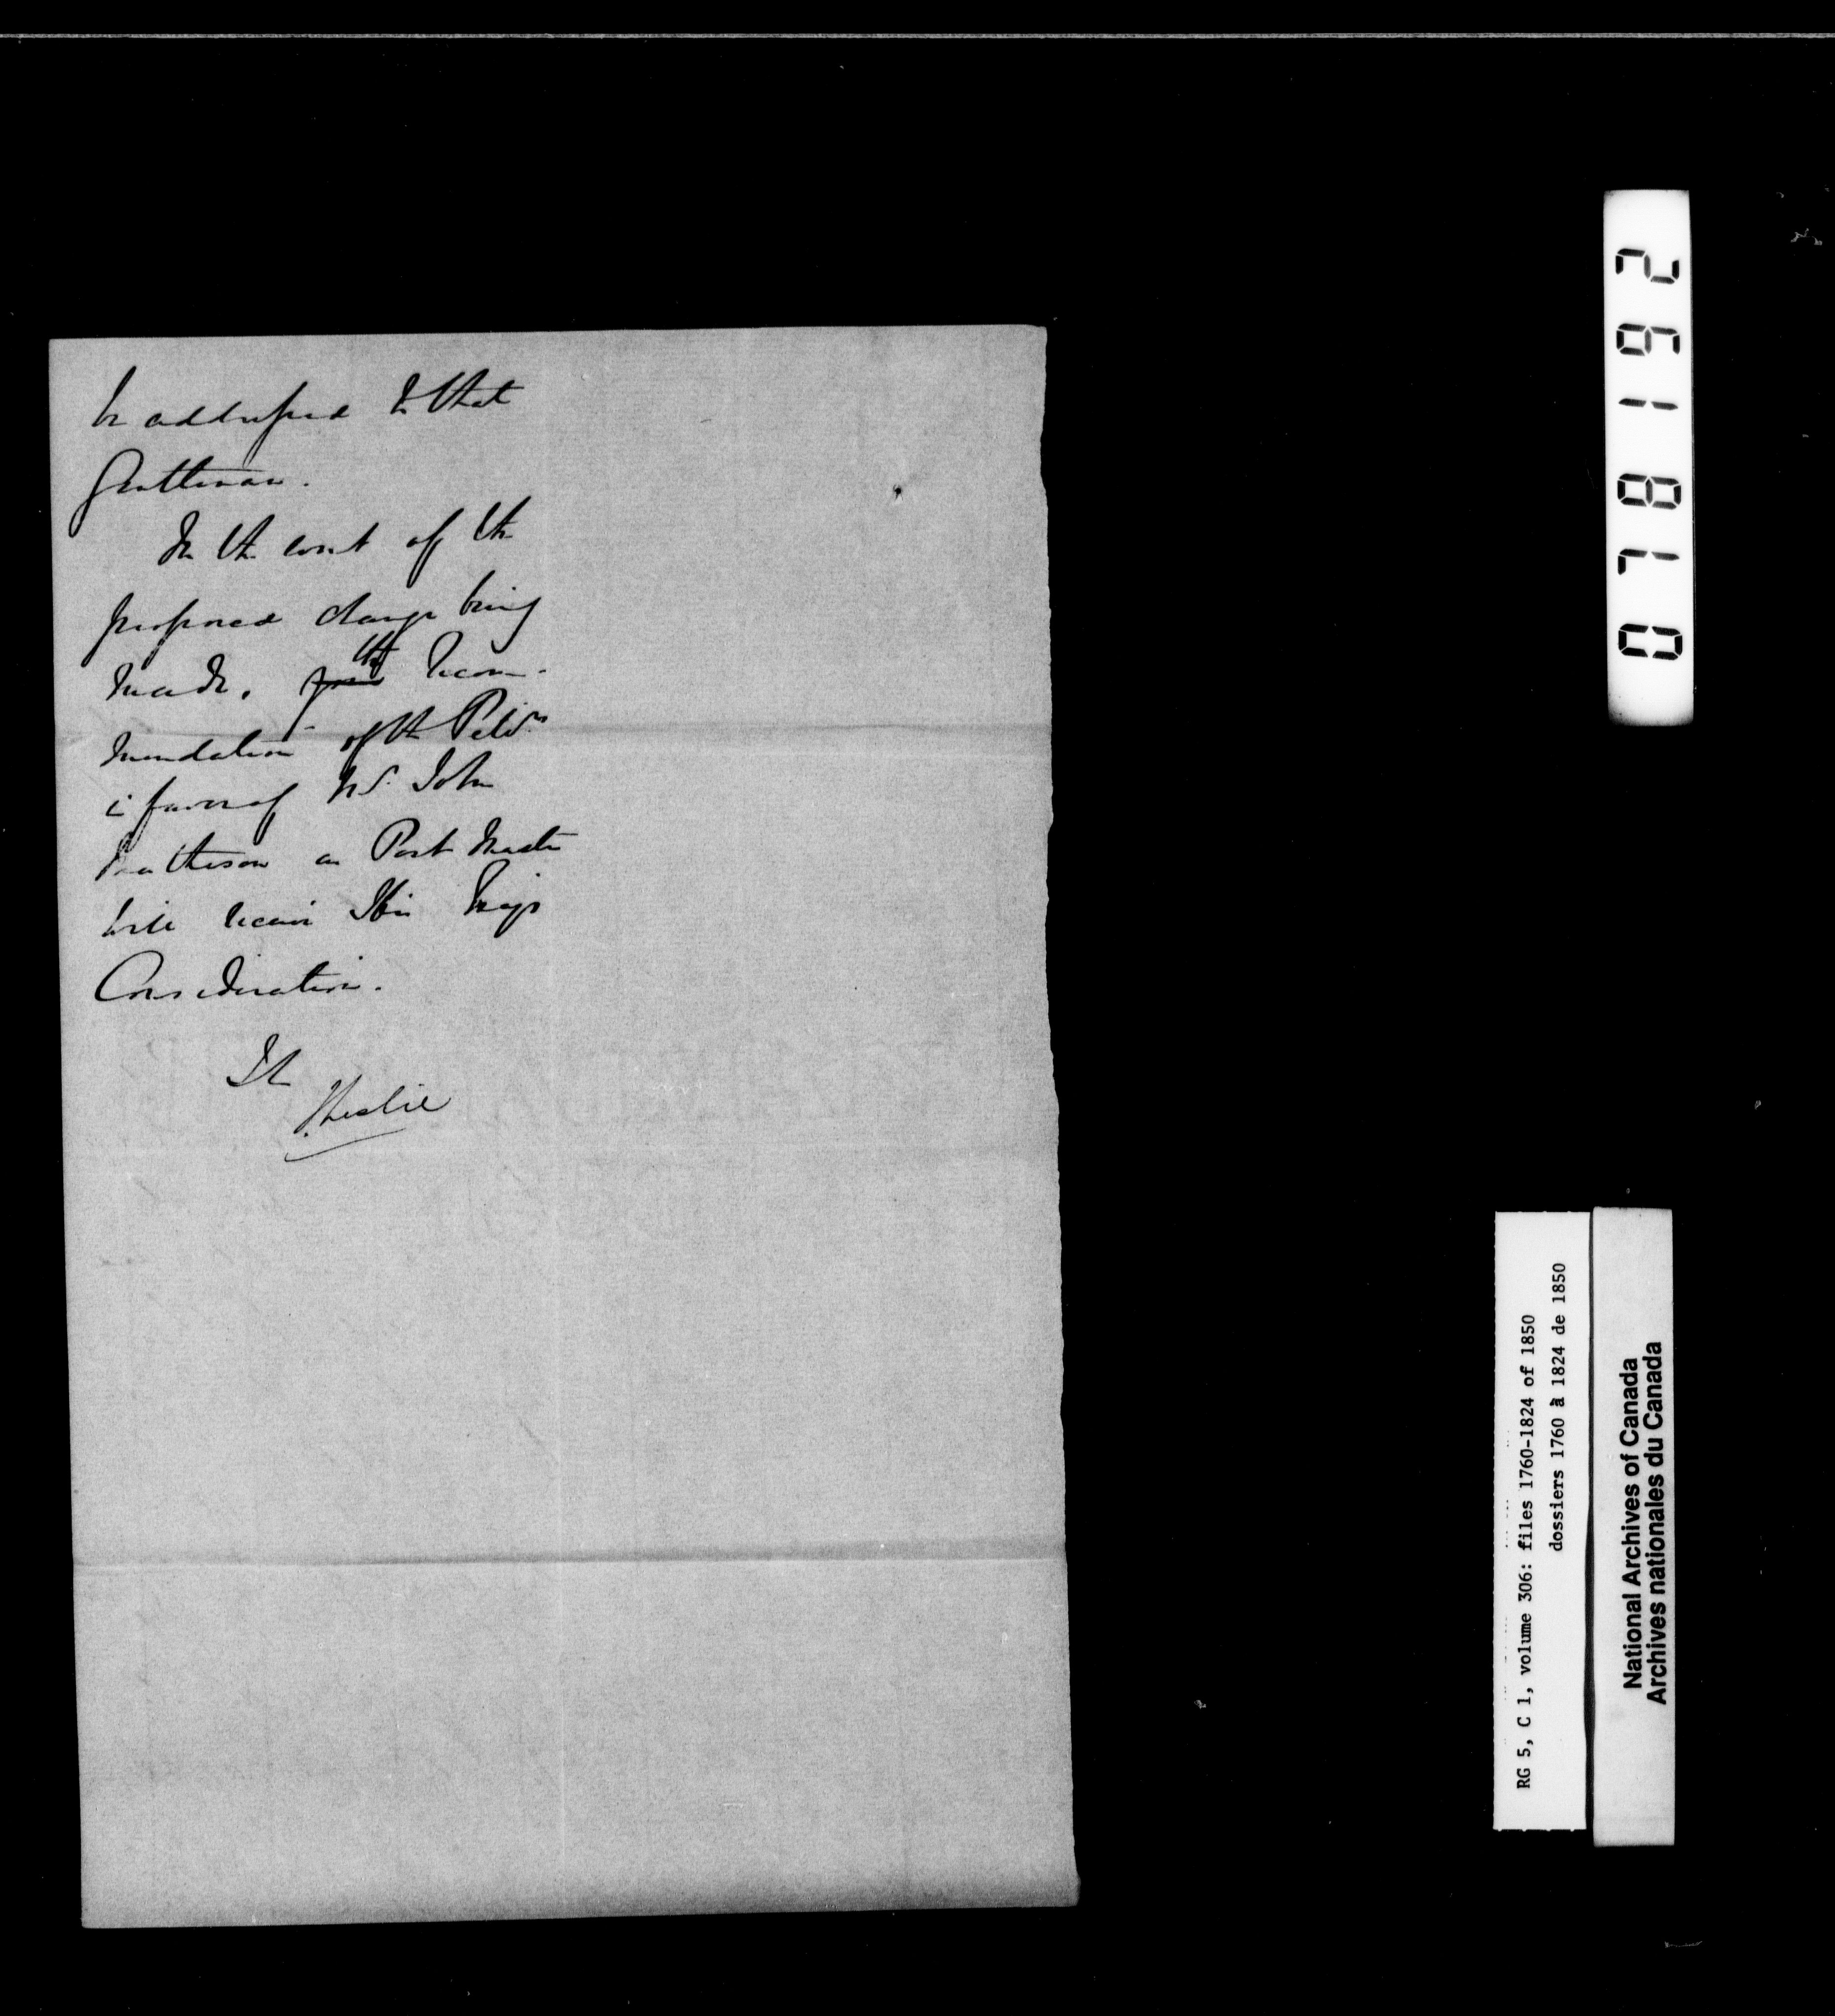 be addressed to that
Gentleman.
In the event of the
proposed change being
made, your the recom-
mendation of the Petrs
in favor of Mr. John
Matheson as Post Master
will receive His Exys
Consideration.
I h
J Leslie
261870
RG 5, C 1, volume 306: files 1760-1824 of 1850
dossiers 1760 à 1824 de 1850
National Archives of Canada
Archives nationales du Canada